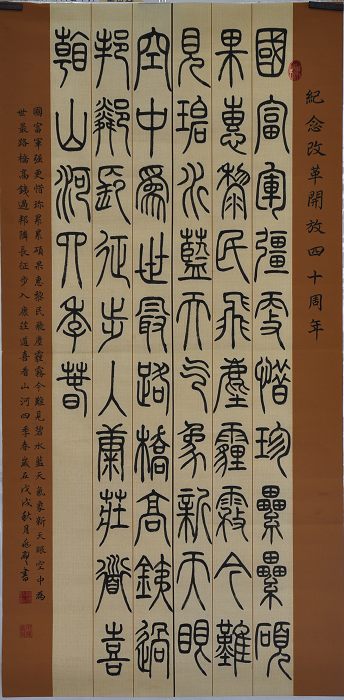 紀念改革開放四十周年
國富軍彊更惜珍纍纍碩
果惠黎民飛塵霾霧今難
見碧水藍天气象新天眼
空中爲世最路橋高鐵過
邦鄰長征步入康莊道喜
看山河四季春
國富軍强更惜珍累累碩果惠黎民飛塵霾霧今難見碧水藍天氣象新天眼空中為
世最路橋高鐵過邦隣長征步入康莊道喜看山河四季春歲在戊戌秋月書